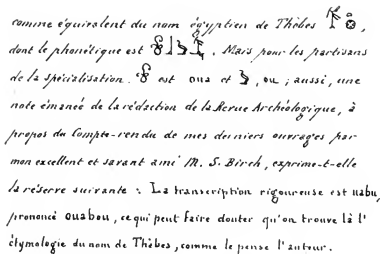 comme équivalent du nom égyptien de Thèbes 𓌀𓊖,
dont le phonétique est . Mais pour les partisans
de la spécialisation. est oua et , ou ; aussi, une
note émanée de la rédaction de la Revue Archéologique, à
propos du Compte-rendu de mes derniers ouvrages par
mon excellent et savant ami M. S. Birch, exprime-t-elle
la réserve suivante : La transcription rigoureuse est uabu,
prononcé ouabou, ce qui peut faire douter qu'on trouve là l'
étymologie du nom de Thèbes, comme le pense l'auteur.